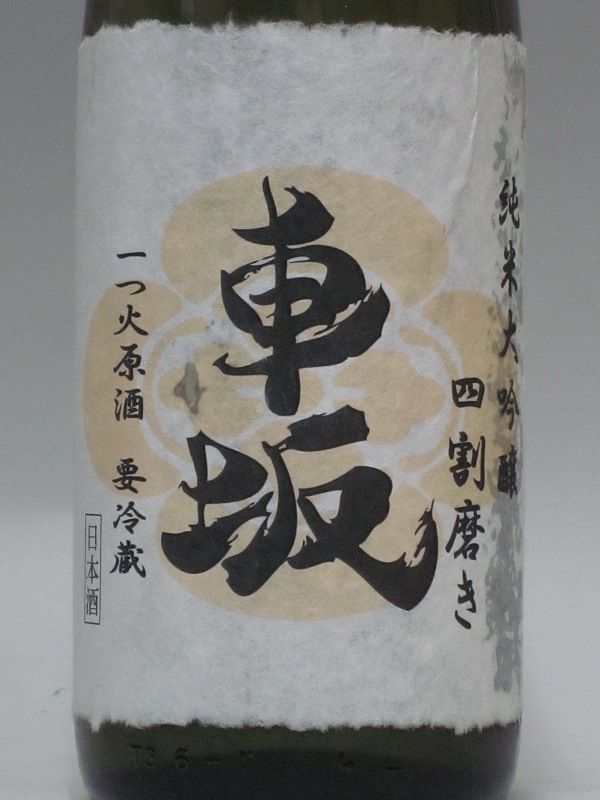 純米大吟醸
四割磨き
車坂
一つ火原酒 要冷蔵
日本酒